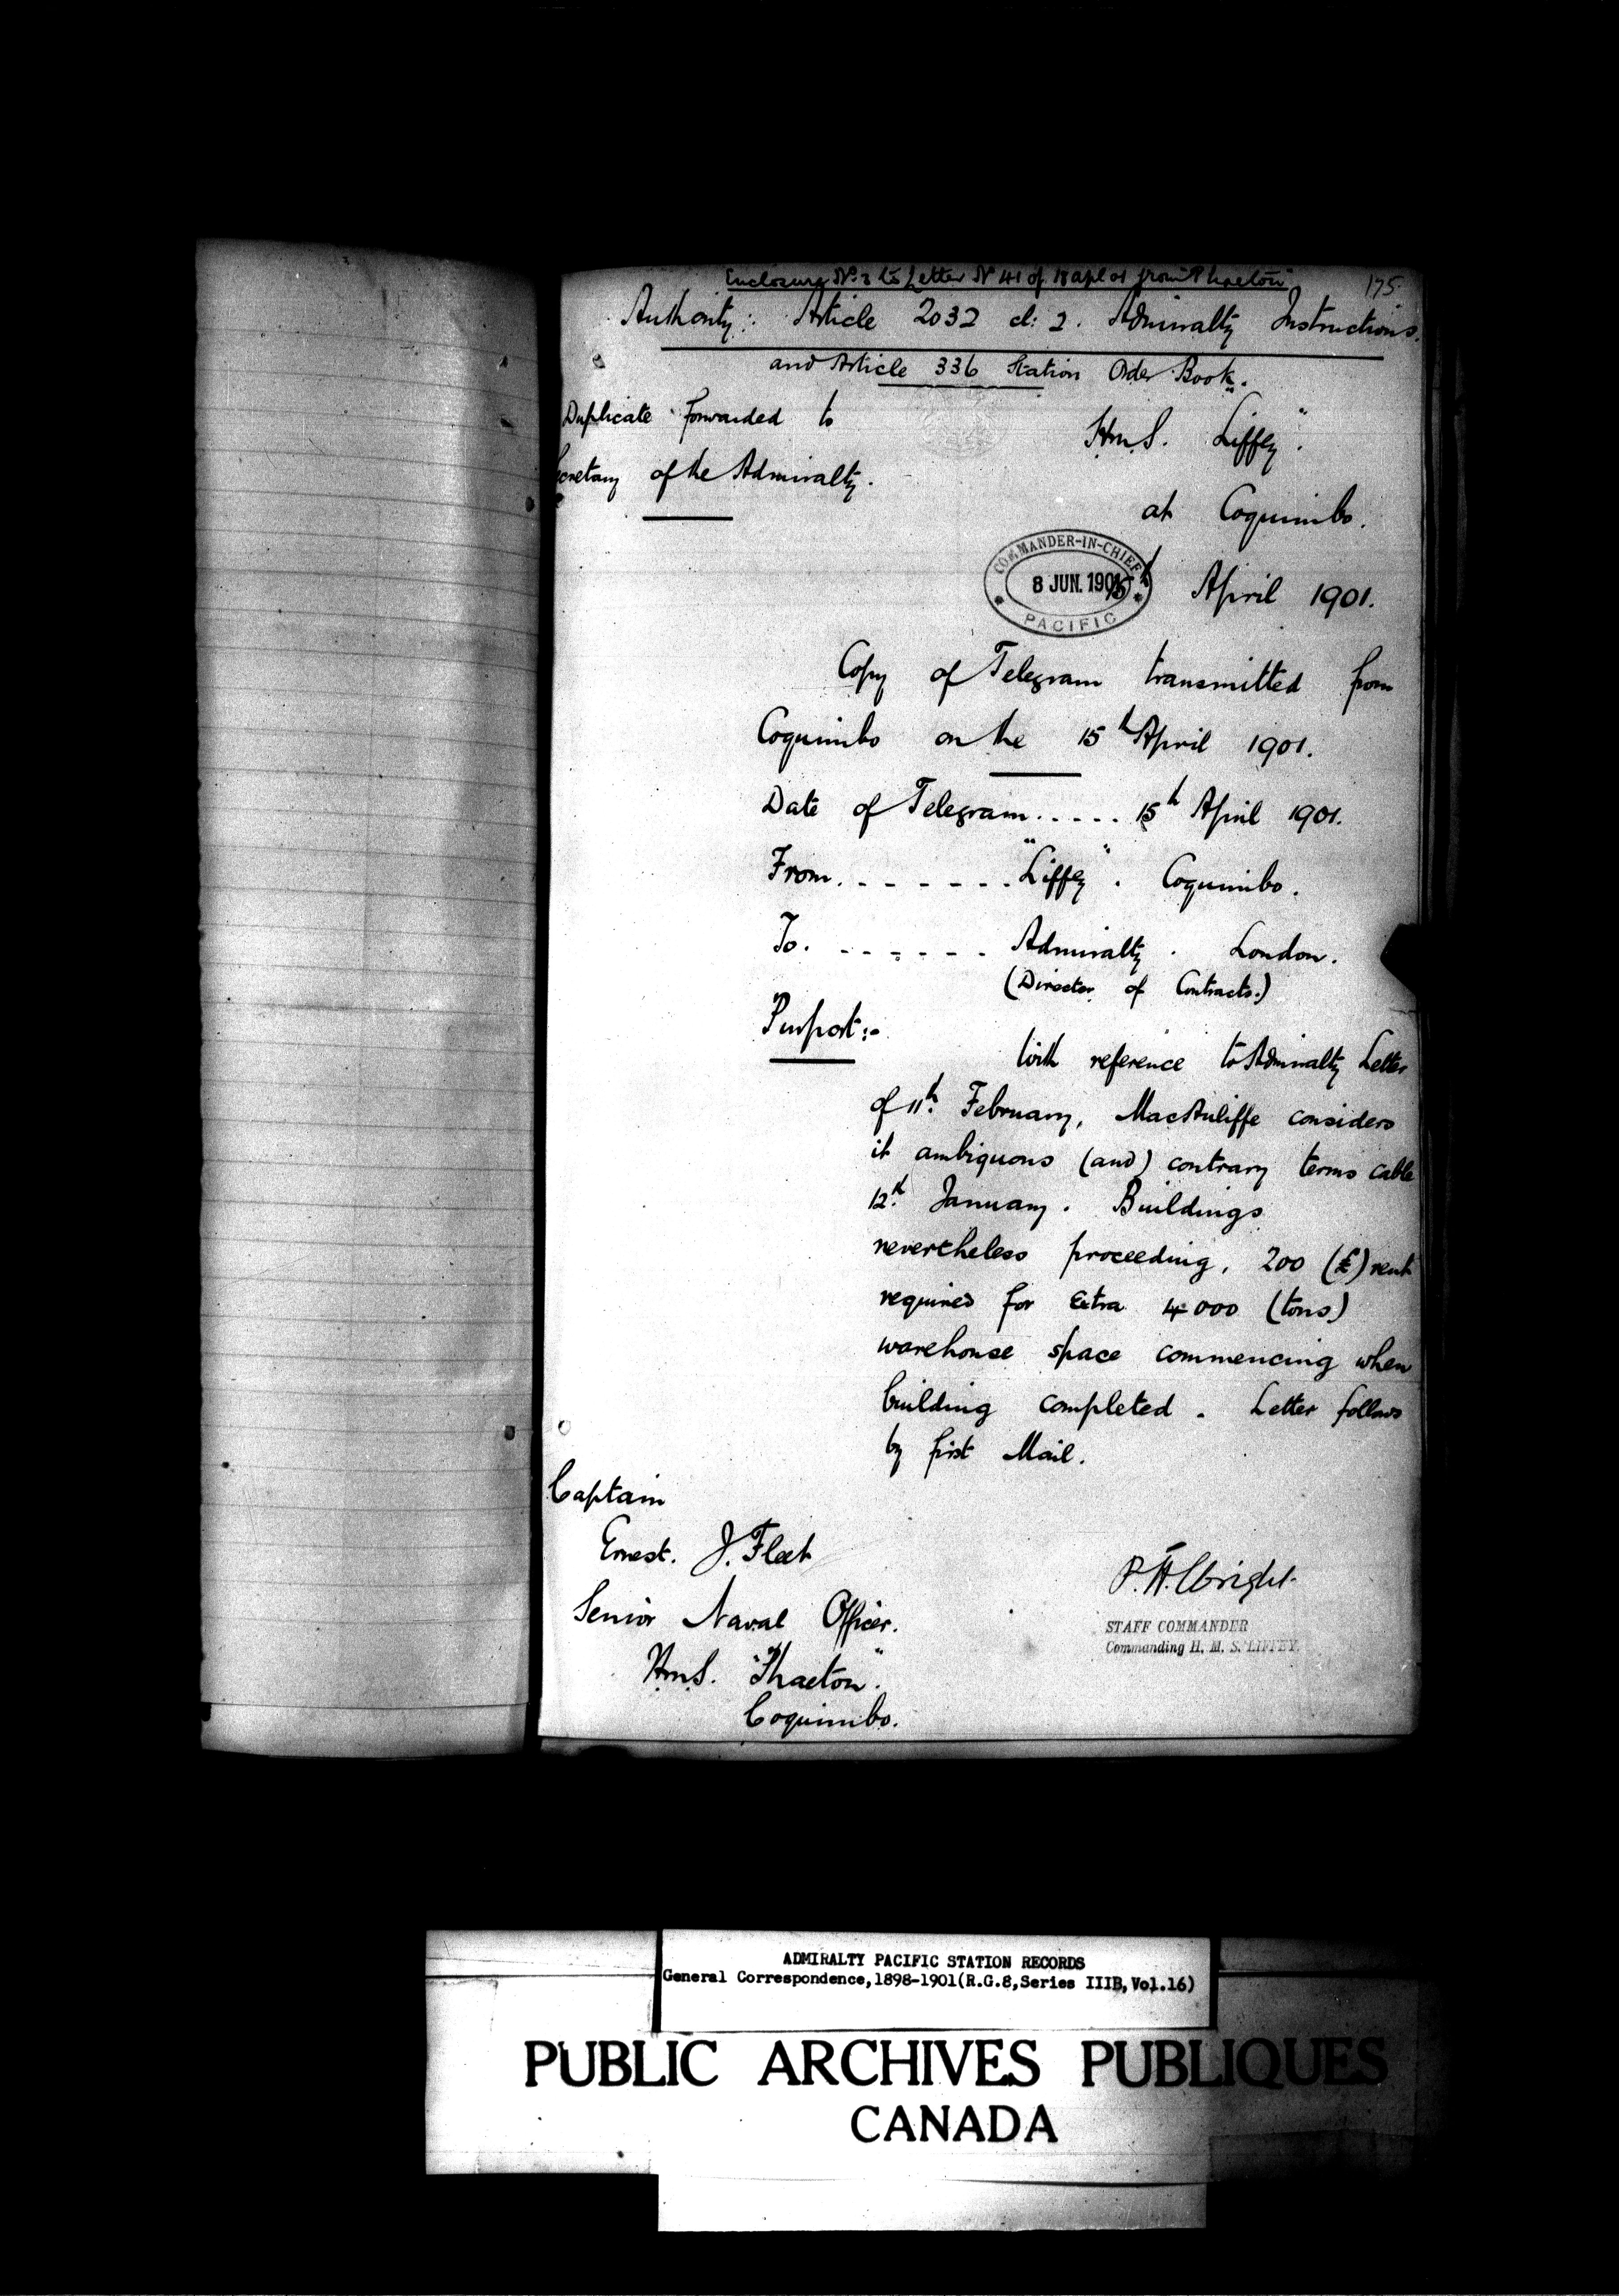 Enclosure No. 3 to Letter No 41 of 18 Apl 01 from "Phaeton"
175
Authority: Article 2032 cl: 2. Admiralty Instructions.
and Article 336 Station Order Book.
Duplicate forwarded to
cretary of the Admiralty.
H.M.S. "Liffey".
at Coquimbo.
COMMANDER-IN-CHIEF
8 JUN. 1901
PACIFIC
15th April 1901.
Copy of Telegram transmitted from
Coquimbo on the 15th April 1901.
Date of Telegram..... 15th April 1901.
From. - - - - - - - "Liffey". Coquimbo.
To. - - - - - - Admiralty. London.
(Director of Contracts.)
Purport:-
With reference to Admiralty Letter
of 11th February, MacAuliffe considers
it ambiguous (and) contrary terms cable
12th January. Buildings
nevertheless proceeding, 200 (£) rent
required for Extra 4000 (tons)
warehouse space commencing when
building completed. Letter follows
by first Mail.
Captain
Ernest. J. Fleet
Senior Naval Officer.
H.M.S. "Phaeton".
Coquimbo.
P. H. Wright.
STAFF COMMANDER
Commanding H. M. S. LIFFEY.
ADMIRALTY PACIFIC STATION RECORDS
General Correspondence,1898-1901(R.G.8,Series IIIB,Vol.16)
PUBLIC ARCHIVES PUBLIQUES
CANADA